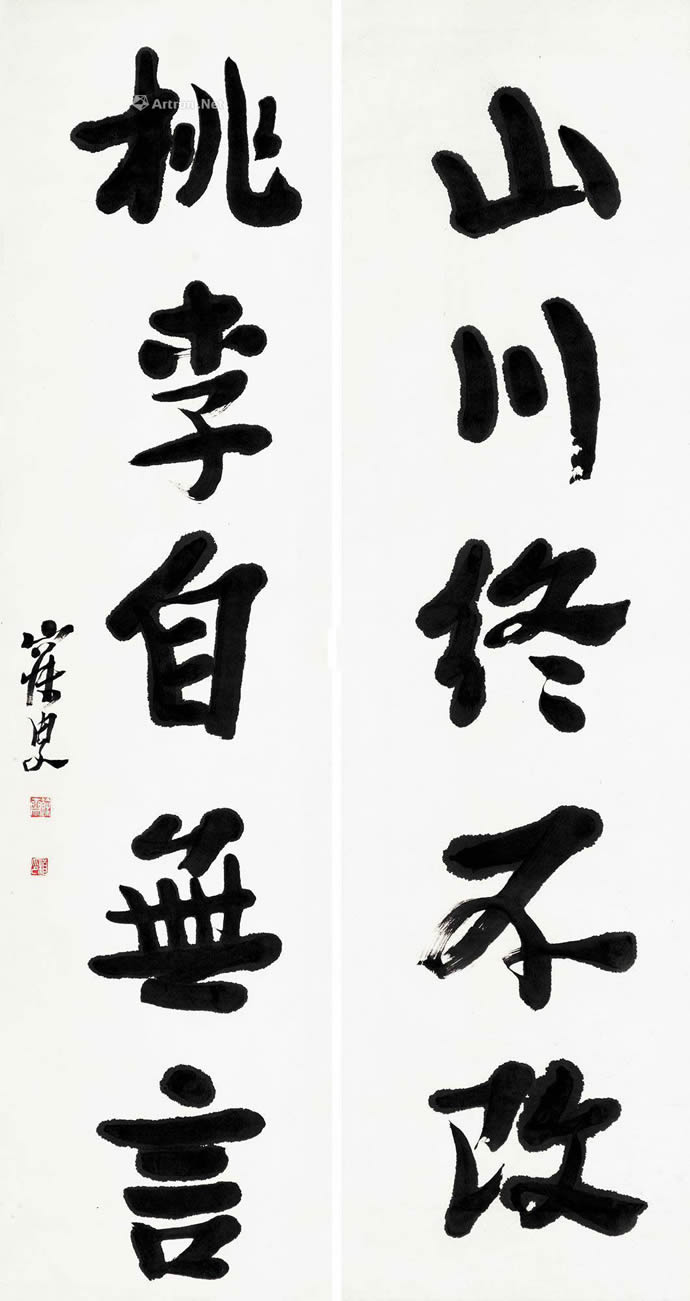 山川終不改
桃李自無言
Artron.Net